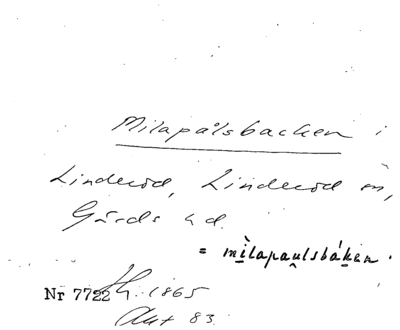 Milapålsbacken i
Linderöd, Linderöd sn,
Gärds hd.
= mìlapau̯lsbáken.
Nr 7722 Sk. 1865
Akt 83